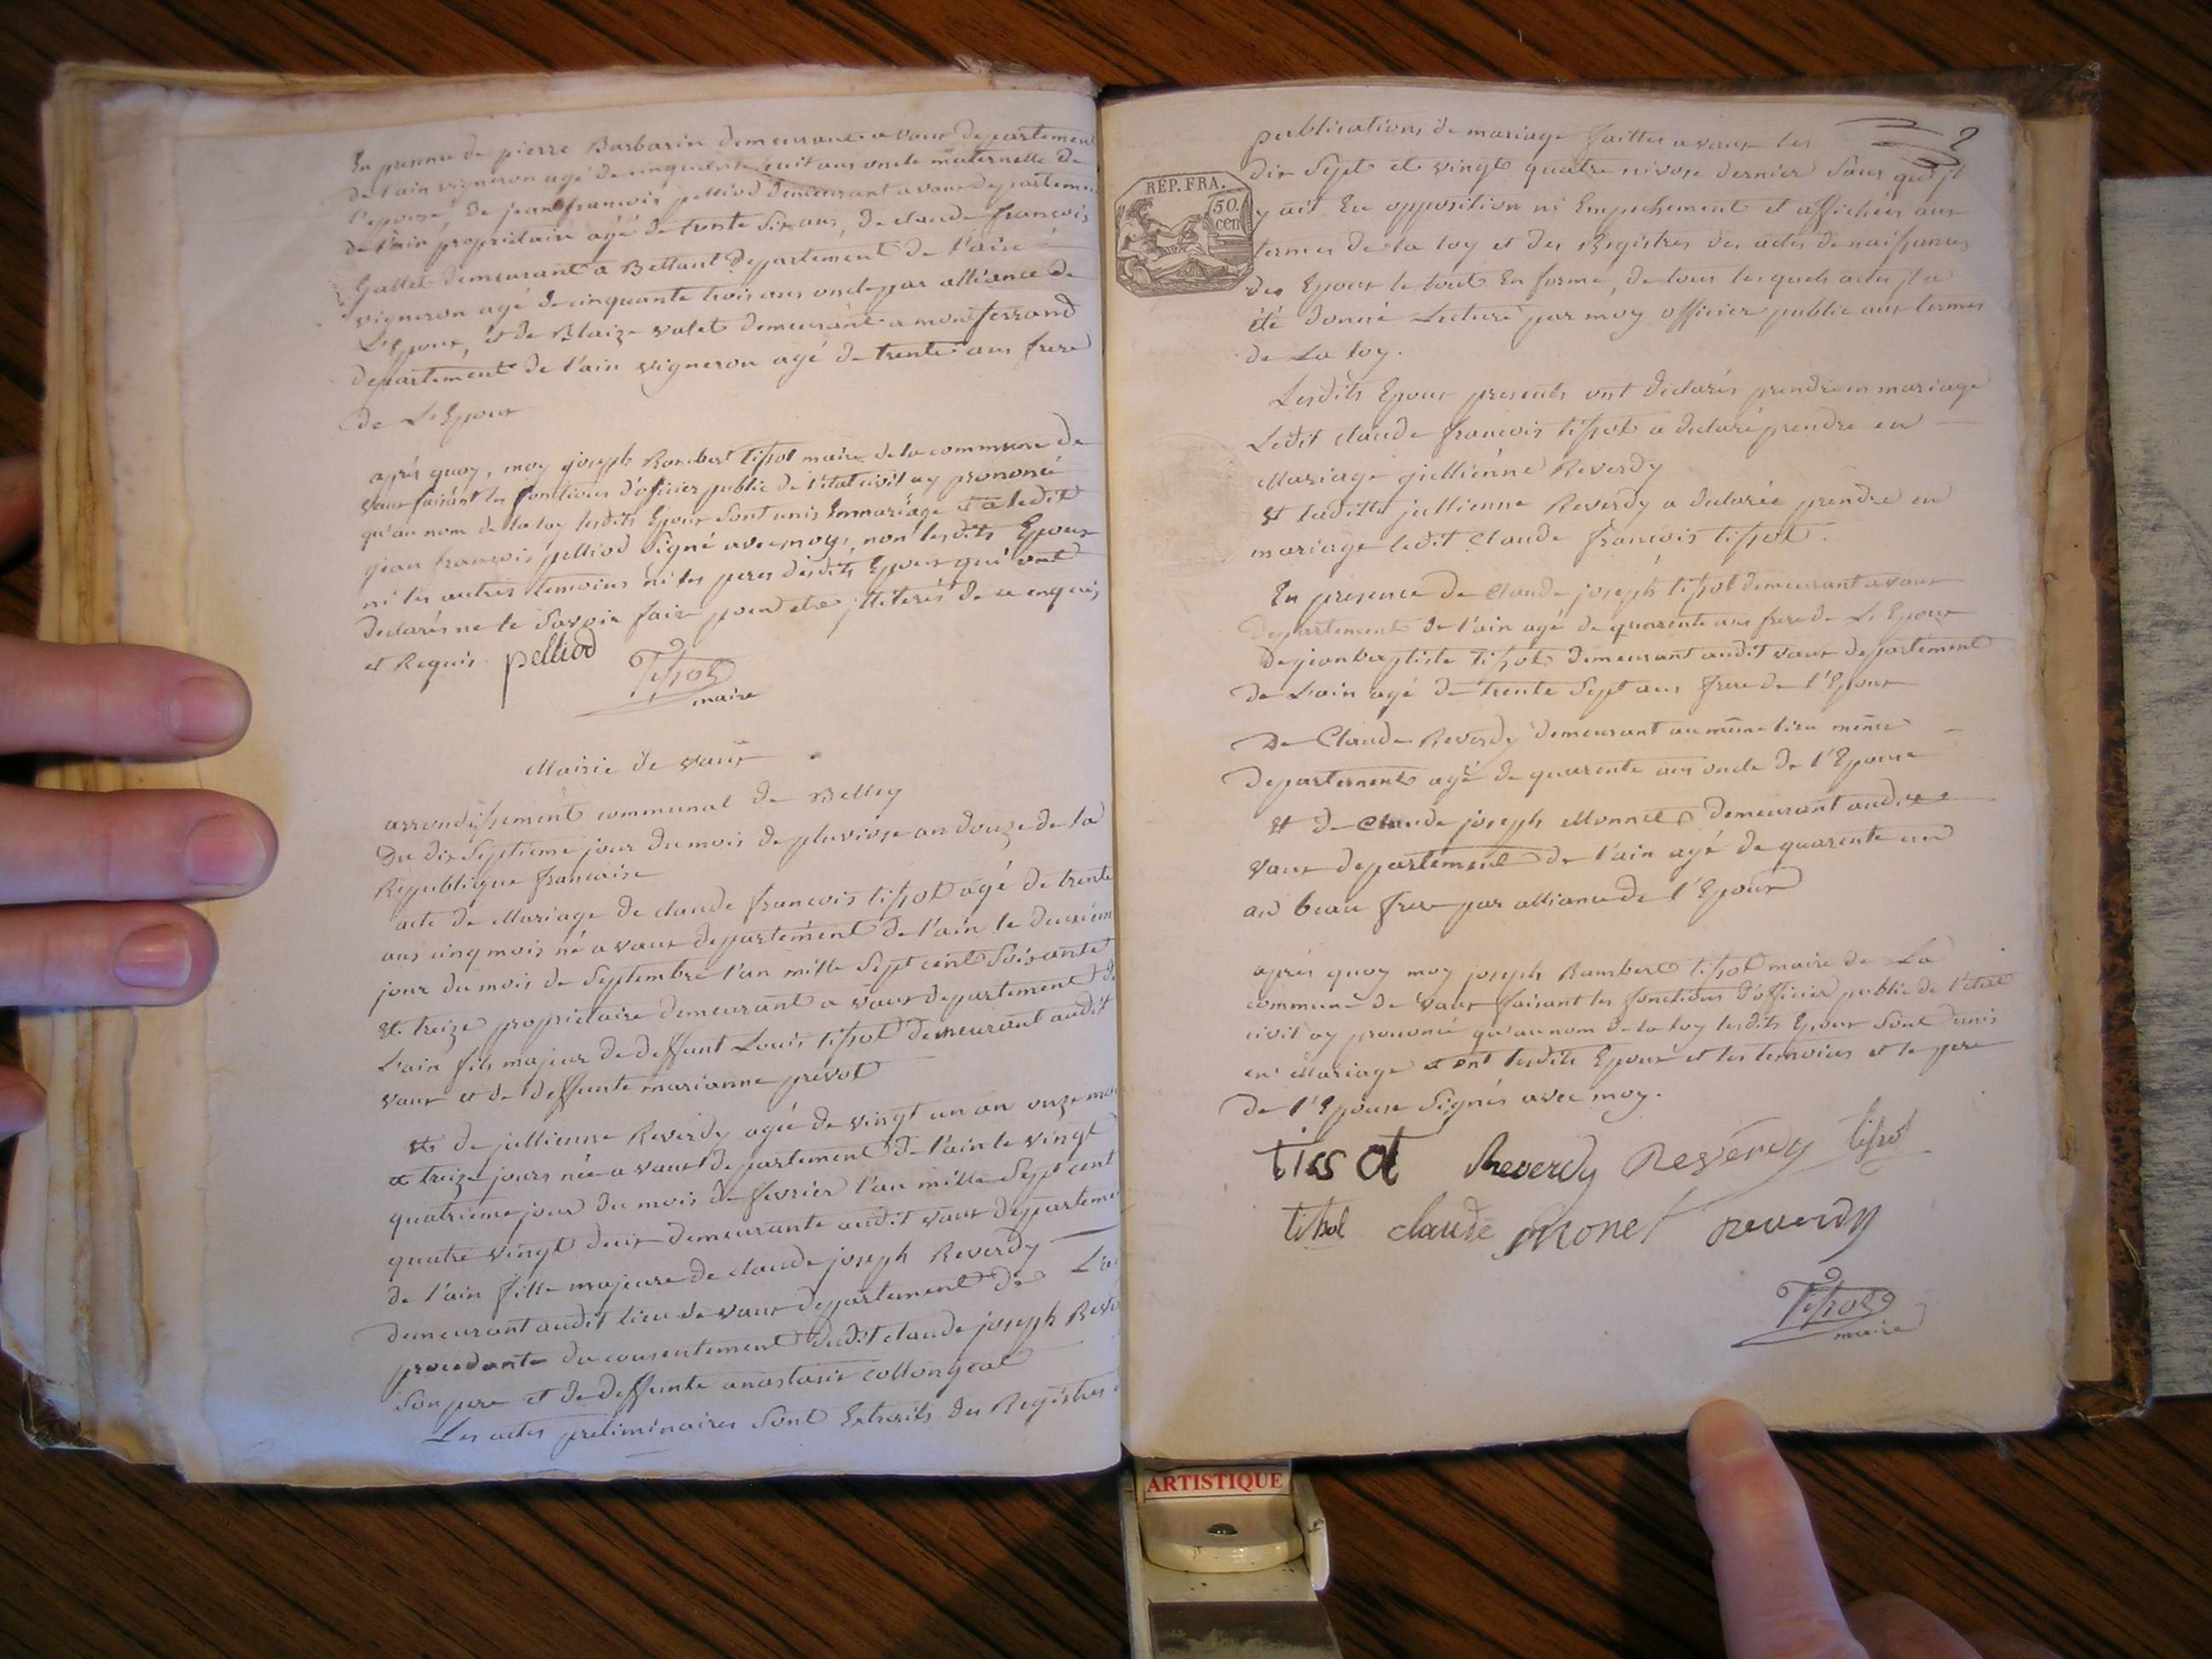 En presence de pierre Barbarin demeurant a vaux departement
de l'ain vigneron agé de cinquante huit ans oncle maternelle de
l'epouse, de jean françois pelliod demeurant a vaux departement
de l'ain proprietaire agé de trente six ans, de claude françois
Gallet demeurant a Bettant departement de l'ain
vigneron agé de cinquante trois ans oncle par alliance de
L'Epoux, et de Blaize valet demeurant a montferrand
departement de l'ain vigneron agé de trente ans frere
de L'Epoux
après quoy, moy joseph Rambert tissot maire de la commune de
vaux faisant les fonctions d'officier public de l'état civil ay prononcé
qu'au nom de la loy lesdits Epoux sont unis En mariage et a ledit
jean françois pelliod signé avec moy, non lesdits Epoux
ni les autres temoins ni les peres desdits Epoux qui ont
declarés ne le savoir faire pour etre jlleterés de ce enquis
et Requis. pelliod
Tissot
maire
Mairie de vaux
arrondissement communal de Belley
Du dix septieme jour du mois de pluviose an douze de la
Republique francaise
acte de Mariage de claude francois tissot agé de trente
ans cinq mois né a vaux departement de l'ain le deuxiem
jour du mois de septembre l'an mille sept cent soixante
et treize proprietaire demeurant a vaux departement de
L'ain fils majeur de deffunt Louis tissot demeurant audit
vaux et de deffunte marianne prevot
et de jullienne Reverdy agée de vingt un an onze mois
et treize jours née a vaux departement de l'ain le vingt
quatrieme jour du mois de fevrier l'an mille sept cent
quatre vingt deux demeurante audit vaux departement
de l'ain fille majeure de claude joseph Reverdy
demeurant audit lieu de vaux departement de L'ain
procedante du consentement dudit claude joseph Rever
son pere et de deffunte anastasie collongeat
Les actes preliminaires sont Extraits des Registres
2
publications de mariage faittes a vaux les
dix sept et vingt quatre nivose dernier sans qu'jl
REP. FRA.
50.
cen
y ait Eu opposition ni Empechement et affichées aux
termes de la loy et des Registres des actes de naissances
des Epoux le tout En forme, de tous lesquels actes jl a
été donné Lecture par moy officier public aux termes
de La loy.
Lesdits Epoux presents ont declarés prendre en mariage
Ledit claude françois tissot a declaré prendre en
Mariage jullienne Reverdy
et laditte jullienne Reverdy a declarée prendre en
mariage ledit claude françois tissot.
En presence de claude joseph tissot demeurant a vaux
departement de l'ain agé de quarente ans frere de L'Epoux
de jean baptiste tissot demeurant audit vaux departement
de L'ain agé de trente sept ans frere de l'Epoux
De Claude Reverdy demeurant au même lieu même
departement agé de quarente ans oncle de l'Epouse
et de claude joseph Monnet demeurant audit
vaux departement de l'ain agé de quarente un
an beau frere par alliance de l'Epoux
après quoy moy joseph Rambert tissot maire de La
commune de vaux faisant les fonctions d'officier public de l'état
civil ay prononcé qu'au nom de la loy lesdits Epoux sont unis
en Mariage et ont lesdits Epoux et les temoins et le pere
de l'Epouse signés avec moy.
tissot Reverdy Reverdy tissot
tissot claude monet reverdy
Tissot
maire
ARTISTIQUE